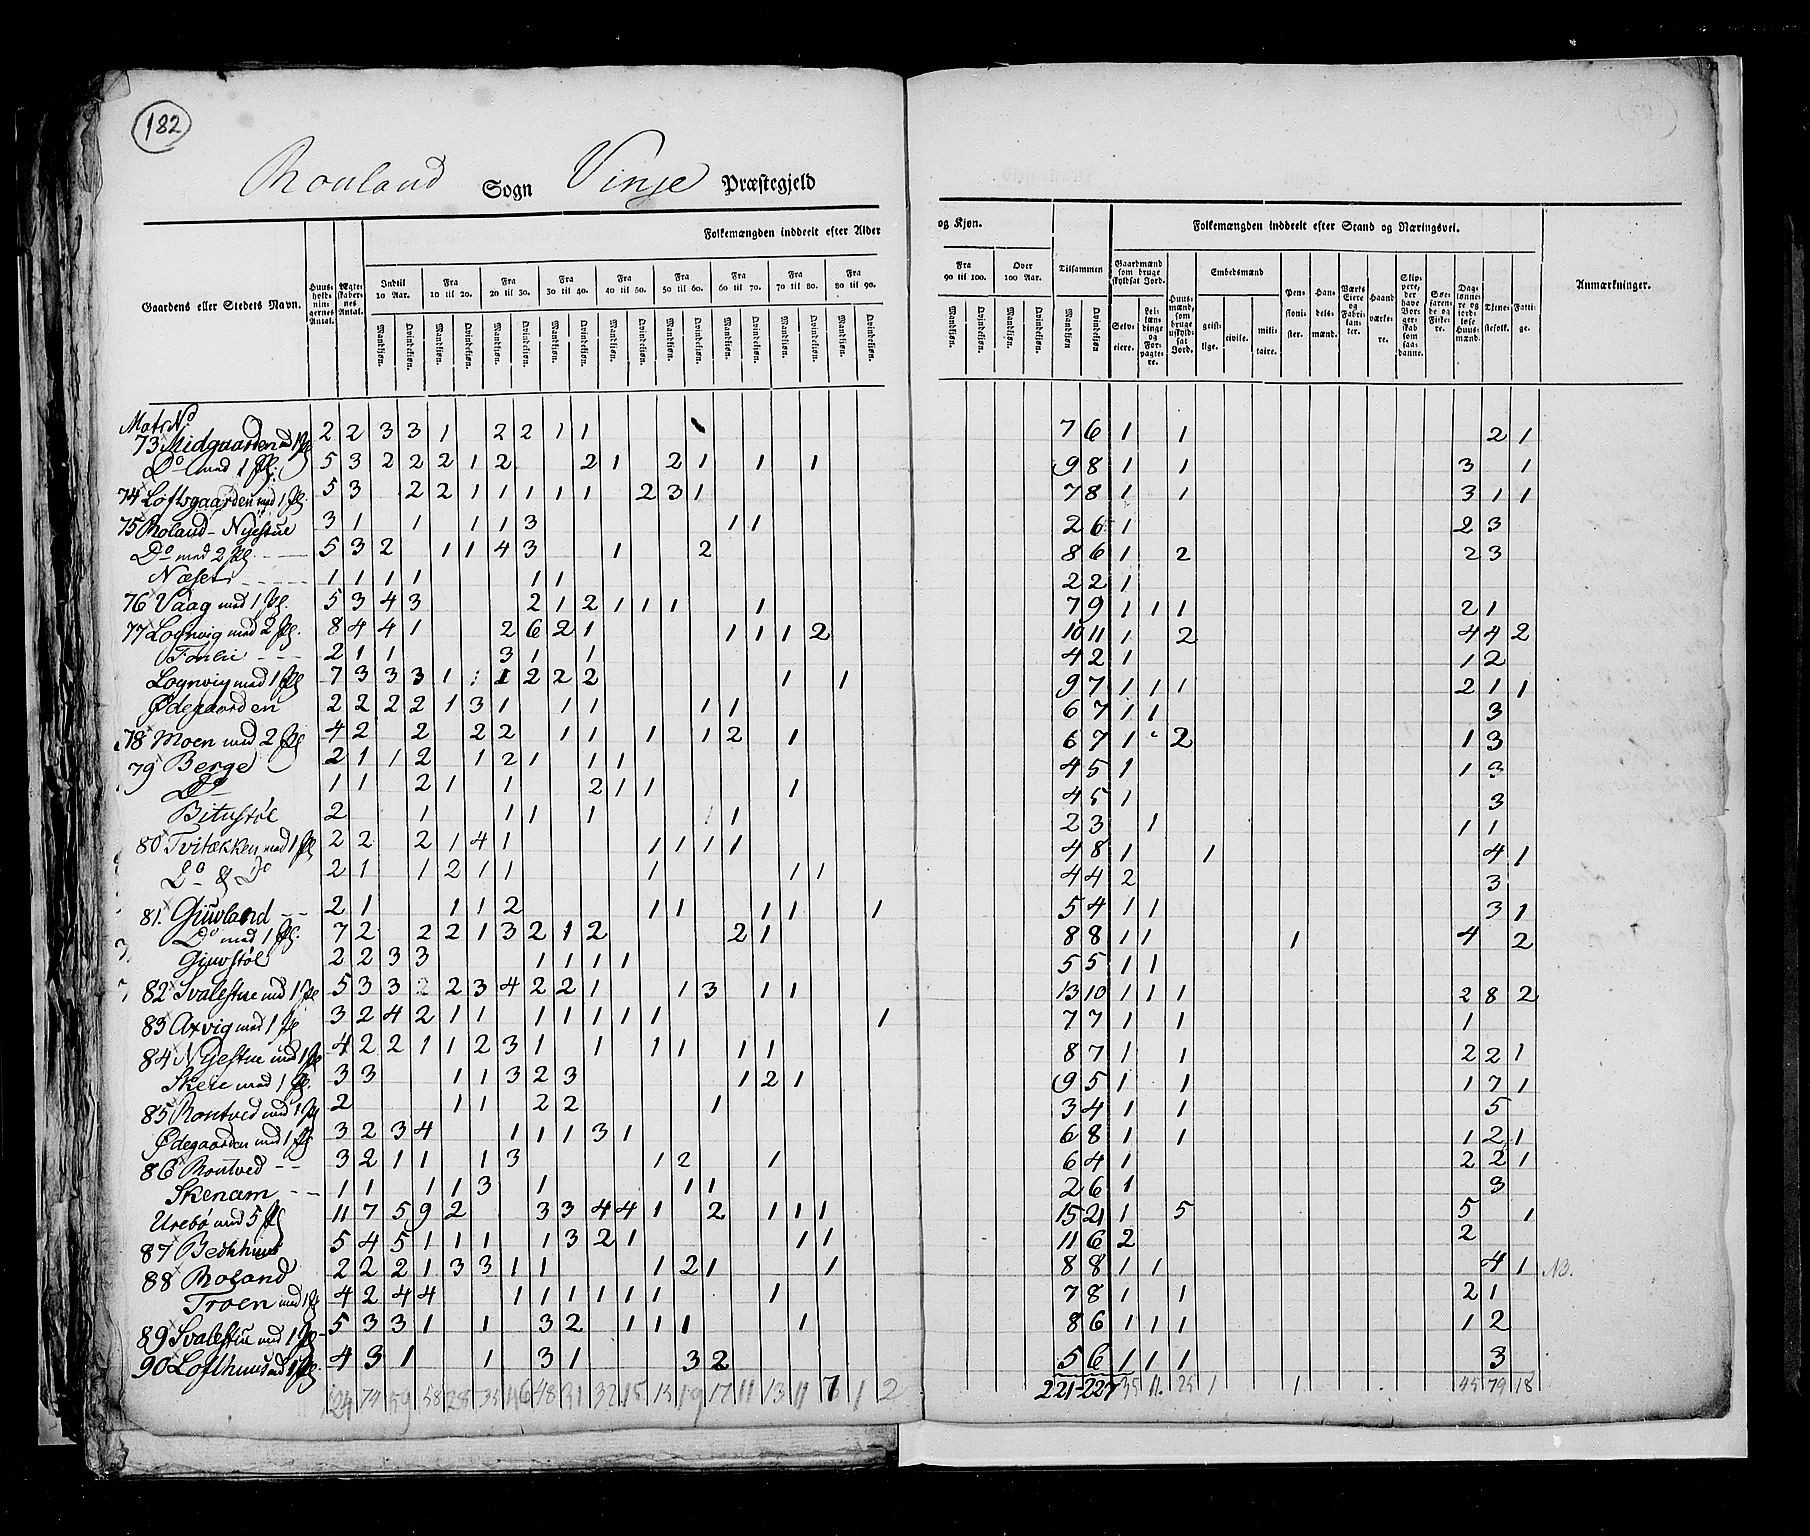 182
Rouland Sogn Vinje Præstegjeld
Gaardens eller Stedets Navn.
Huusholdningernes Antal.
Ægteskabernes Antal.
Folkemængden inddeelt efter Alder og Kjøn.
Indtil 10 Aar. Fra 10 til 20. Fra 20 til 30. Fra 30 til 40. Fra 40 til 50. Fra 50 til 60. Fra 60 til 70. Fra 70 til 80. Fra 80 til 90. Fra 90 til 100. Over 100 Aar. Tilsammen
Mandkjøn. Qvindekjøn.
Folkemængden inddeelt efter Stand og Næringsvei.
Gaardmænd som bruge skyldsat Jord.
Selveiere. Leilændinge og Forpagtere.
Huusmænd, som bruge uskyldsat Jord.
Embedsmænd
geistlige. civile. militaire.
Pensionister. Handelsmænd. Værks Eiere og Fabrikanter. Haandværkere. Skippere, der have Borgerskab som saadanne. Søefarende og Fiskere. Daglønnere og jordløse Huusmænd. Tjenestefolk. Fattige.
Anmærkninger.
Matr No
73 Midgaarden md 1 Pl 2 2 3 3 1 2 2 1 1 7 6 1 1 2 1
Do med 1 Pl. 5 3 2 2 2 1 2 2 1 2 1 1 1 9 8 1 1 3 1
74 Loftsgaarden md 1 Pl 5 3 2 2 1 1 1 1 1 2 3 1 7 8 1 1 3 1 1
75 Roland-Nyestue 3 1 1 1 1 3 1 1 2 6 1 2 3
Do med 2 Pl. 5 3 2 1 1 4 3 1 2 8 6 1 2 2 3
Næset 1 1 1 1 1 1 2 2 1
76 Vaag med 1 Pl. 5 3 4 3 2 1 2 1 1 1 1 7 9 1 1 1 2 1
77 Lognvig med 2 Pl. 8 4 4 1 2 6 2 1 1 1 1 2 10 11 1 2 4 4 2
2 1 1 3 1 1 4 2 1 1 2
Lognvig med 1 Pl 7 3 3 3 1 1 1 2 2 2 1 1 9 7 1 1 1 2 1 1
Ødegaarden 2 2 2 2 1 3 1 1 1 1 1 6 7 1 1 3
78 Moen med 2 Pl 4 2 2 2 2 1 1 1 1 2 1 6 7 1 2 1 3
79 Berge 2 1 1 2 1 2 1 1 1 4 5 1 1 3
Do 1 1 2 1 1 2 1 1 1 4 5 1 3
Bitustøl 2 1 1 1 1 1 2 3 1 1 1
80 Tvitækken med 1 Pl 2 2 2 1 4 1 1 1 1 1 4 8 1 1 4 1
Do & Do 2 1 1 2 1 1 1 1 1 4 4 2 3
81. Gjuvland 2 1 1 1 2 1 1 1 1 1 5 4 1 1 3 1
Do med 1 Pl. 7 2 2 2 1 3 2 1 2 2 1 8 8 1 1 1 4 2
Gjuvstøl 2 2 3 3 1 1 1 1 5 5 1 1
82 Svalestue md 1 Pl 5 3 3 2 2 3 4 2 2 1 1 3 1 1 13 10 1 1 1 2 8 2
83 Axvig med 1 Pl 3 2 4 2 1 1 1 1 1 1 1 1 7 7 1 1 1
84 Nyestue md 1 Pl 4 2 2 1 1 2 3 1 1 1 1 1 1 8 7 1 1 2 2 1
Skere med 1 Pl. 3 3 1 1 3 2 3 1 2 1 9 5 1 1 1 7 1
85 Rontved md 1 Pl 2 1 1 2 2 1 3 4 1 1 5
Ødegaarden md 1 Pl 3 2 3 4 1 1 1 3 1 6 8 1 1 1 2 1
86 Rontved 3 2 1 1 1 3 1 2 1 6 4 1 2 2 1
Skenam 1 1 1 1 3 1 1 1 2 6 1 3
Urebø med 5 Pl 11 7 5 9 2 3 3 4 4 1 2 1 1 1 15 21 1 5 5 1
87 Bechhuus 5 4 5 1 1 1 1 3 2 1 1 1 11 6 2 2
88 Roland 2 2 2 1 3 3 1 1 1 2 1 1 8 8 1 1 4 1 NB.
Troen md 1 Pl 4 2 4 4 1 1 1 1 1 1 1 7 8 1 1 2 1
89 Svalestue md 1 Pl 5 3 3 1 1 3 2 1 1 1 1 8 6 1 1 1 1 2
90 Lofthuus md 1 Pl. 4 3 1 1 3 1 3 2 5 6 1 1 1 3
124 74 59 58 28 35 46 48 31 32 15 15 19 17 11 13 11 7 1 2 221 227 35 11. 25 1 1. 45 79 18